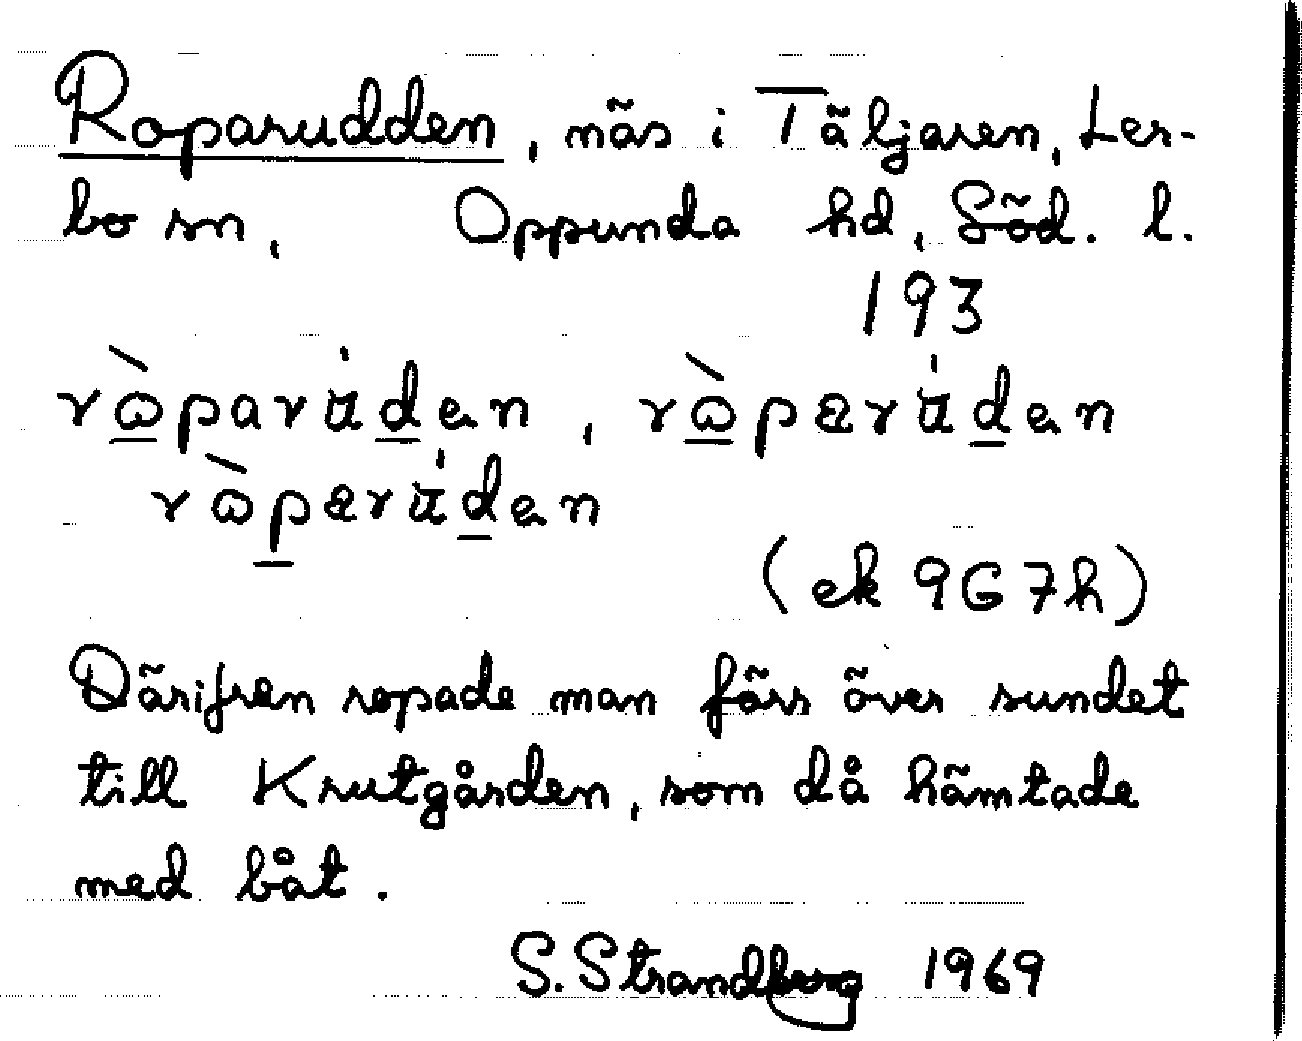 Roparudden, näs i Täljaren, Ler-
bo sn, Oppunda hd, Söd. l.
193
(ek 9G 7h)
Därifrån ropade man förr över sundet
till Krutgården, som då hämtade
med båt.
S. Strandberg 1969